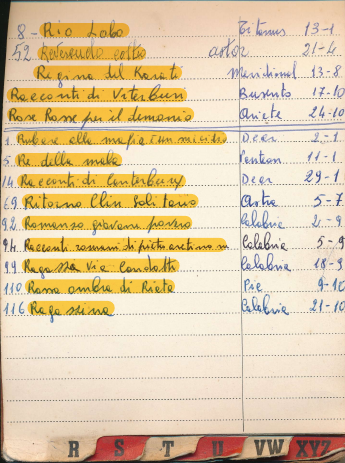 8 - Rio Lobo Titanus 13-1
52 Referendo astor 21-4
Regina del Karatè Meridional 13-8
Racconti di Viterbury Buxento 17-10
Rose Rosse per il demonio Ariete 24-10
1 Rubare alla mafia è un suicidio Dear 2-1
5 Re della mala Ventean 11-1
14 Racconti di Canterbury Dear 29-1
69 Ritorno Clin Solitario Astra 5-7
92 Romanzo giovane povero Calabria 2-9
94 Racconti romani di pietro aretino Calabria 5-9
99 Ragazza via Condotti Calabria 18-9
110 Rossa ombra di Riata Pic 9-10
116 Ragazzina Calabria 21-10
R S T U VW XYZ